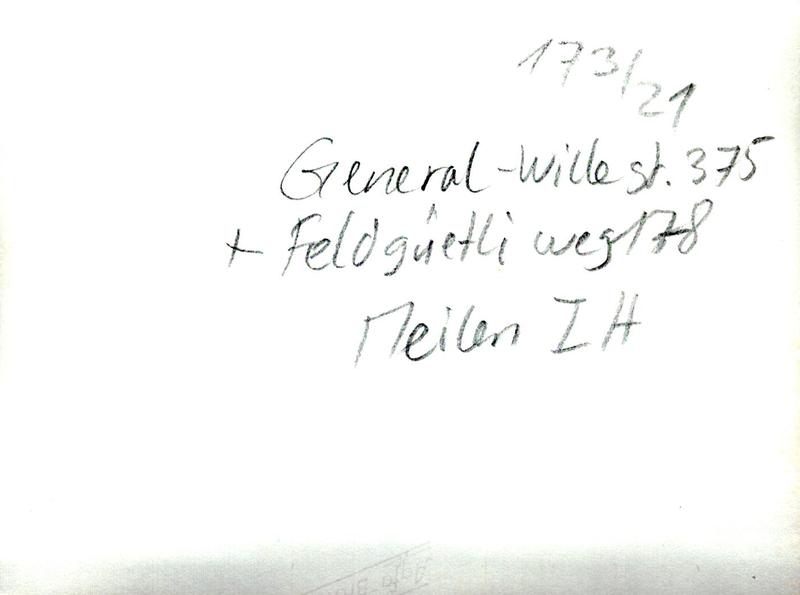 173/21
General-Willest. 375
+ Feldgüetli weg 178
Meilen ZH